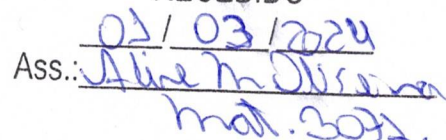 01/03/2024
Ass.: Aline M Oliveira
mat. 3071